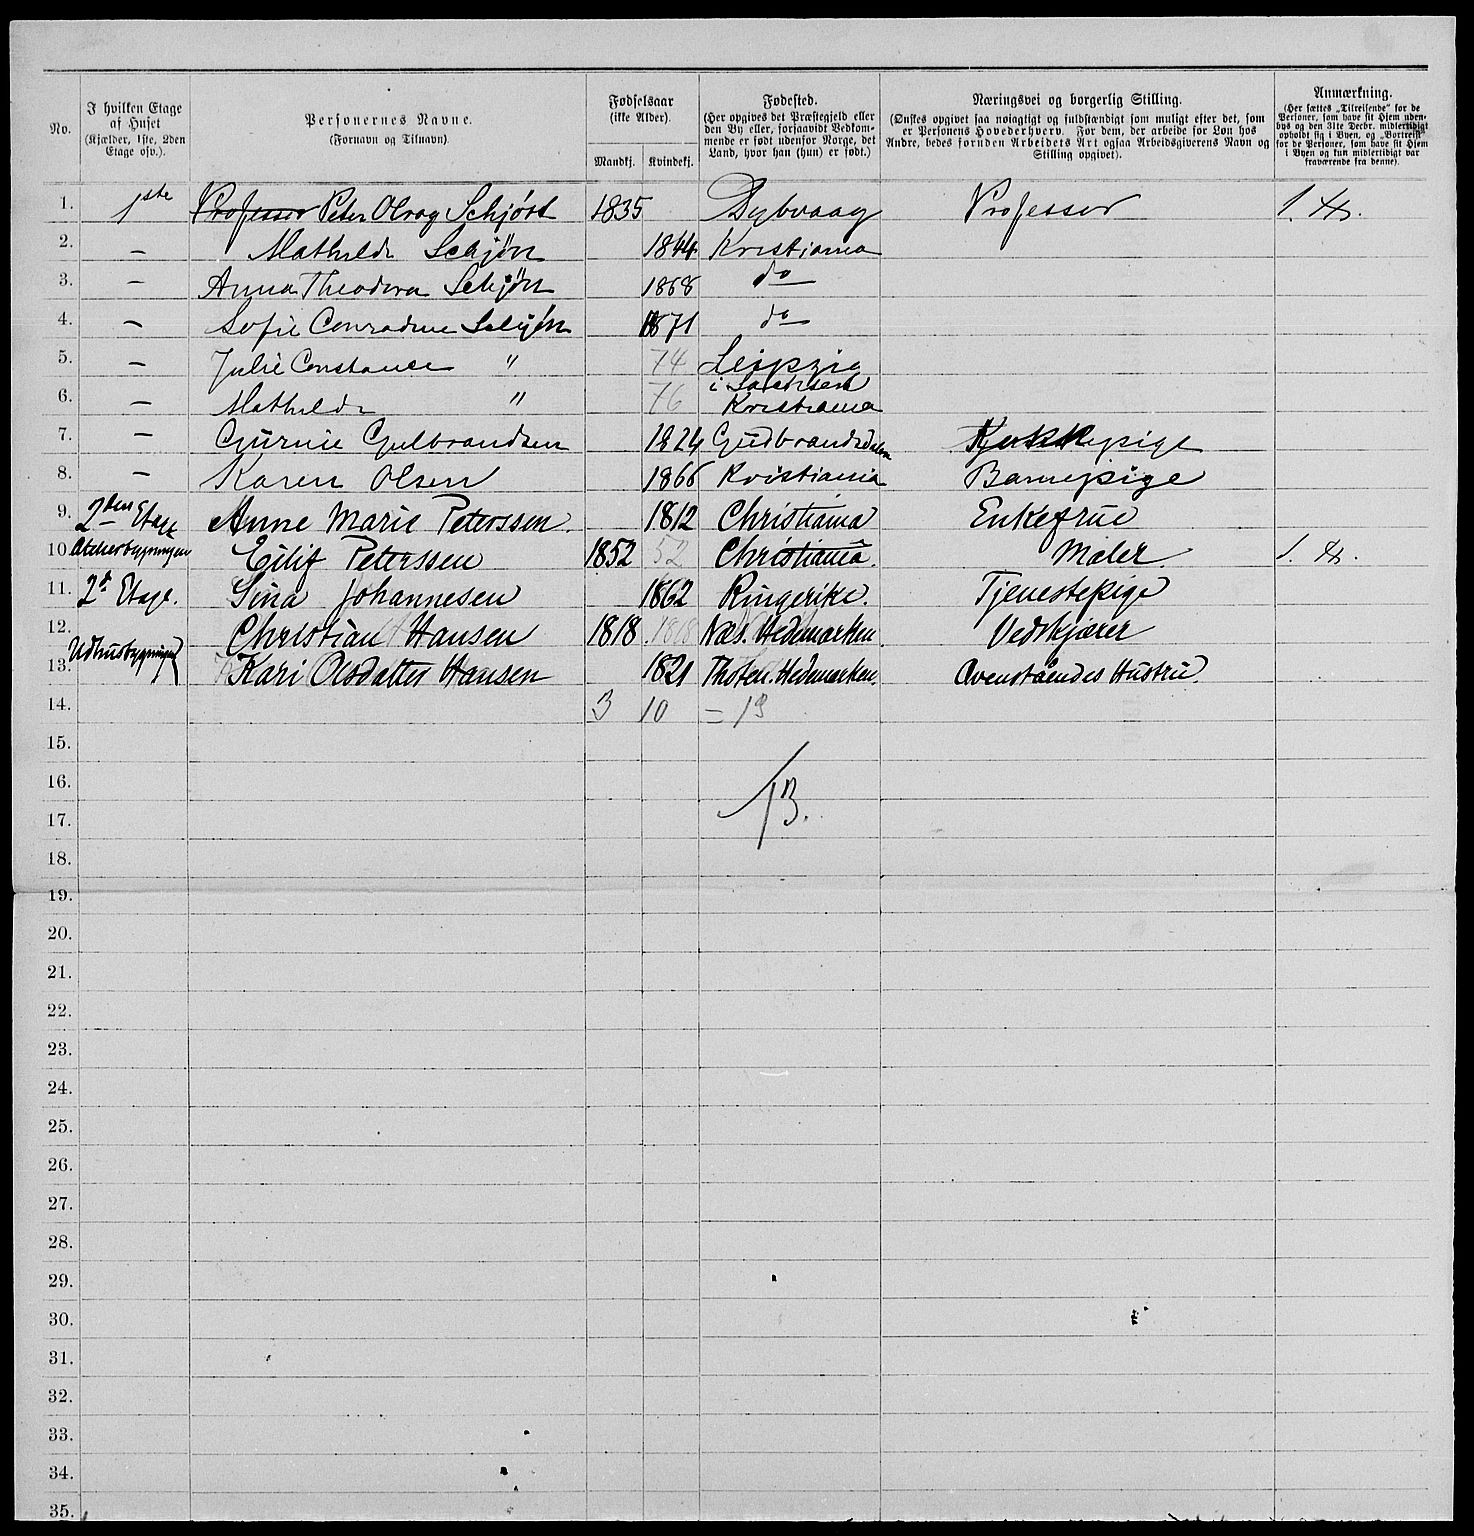 No.
I hvilken Etage
af Huset
(Kjælder, 1ste, 2den
Etage osv.).
Personernes Navne.
(Fornavn og Tilnavn).
Fødselsaar
(ikke Alder).
Mandkj. Kvindekj.
Fødested.
(Her opgives det Præstegjeld eller
den By eller, forsaavidt Vedkom-
mende er født udenfor Norge, det
Land, hvor han (hun) er født.)
Næringsvei og borgerlig Stilling.
(Ønskes opgivet saa nøiagtigt og fuldstændigt som muligt efter det, som
er Personens Hovederhverv. For dem, der arbeide for Løn hos
Andre, bedes foruden Arbeidets Art ogsaa Arbeidsgiverens Navn og
Stilling opgivet).
Anmærkning.
(Her sættes „Tilreisende“ for de
Personer, som have sit Hjem uden-
bys og den 31te Decbr. midlertidigt
opholdt sig i Byen, og „Bortreist“
for de Personer, som have sit Hjem
i Byen og kun midlertidigt var
fraværende fra denne).
1. 1ste Professor Peter Olrog Schjøtt 1835 Dybvaag Professor 1. H.
2. — Mathilde Schjött 1844 Kristiania
3. — Anna Theodora Schjött 1868 do
4. — Sofie Conradine Schjött 1871 do
5. — Julie Constance " 74 Leipzig
i Sachsen
6. — Mathilde " 76 Kristiania
7. — Gurine Gulbrandsen 1824 Gudbrandsdalen Kokkepige
8. — Karen Olsen 1866 Kristiania Barnepige
9. 2den Etage Anne Marie Peterssen 1812 Christiania Enkefrue
10. Atelierbygningen Eilif Peterssen 1852 52 Christiania. Maler 1. H.
11. 2d Etage. Sina Johannesen 1862 Ringerike. Tjenestepige
12. Udhusbygningen Christian Hansen 1818 1818 Næs. Hedemarken. Vedskjærer
13. Kari Olsdatter Hansen 1821 Thoten. Hedemarken. Ovenståendes Hustru
14. 3 10 = 13
15.
16.
13.
17.
18.
19.
20.
21.
22.
23.
24.
25.
26.
27.
28.
29.
30.
31.
32.
33.
34.
35.